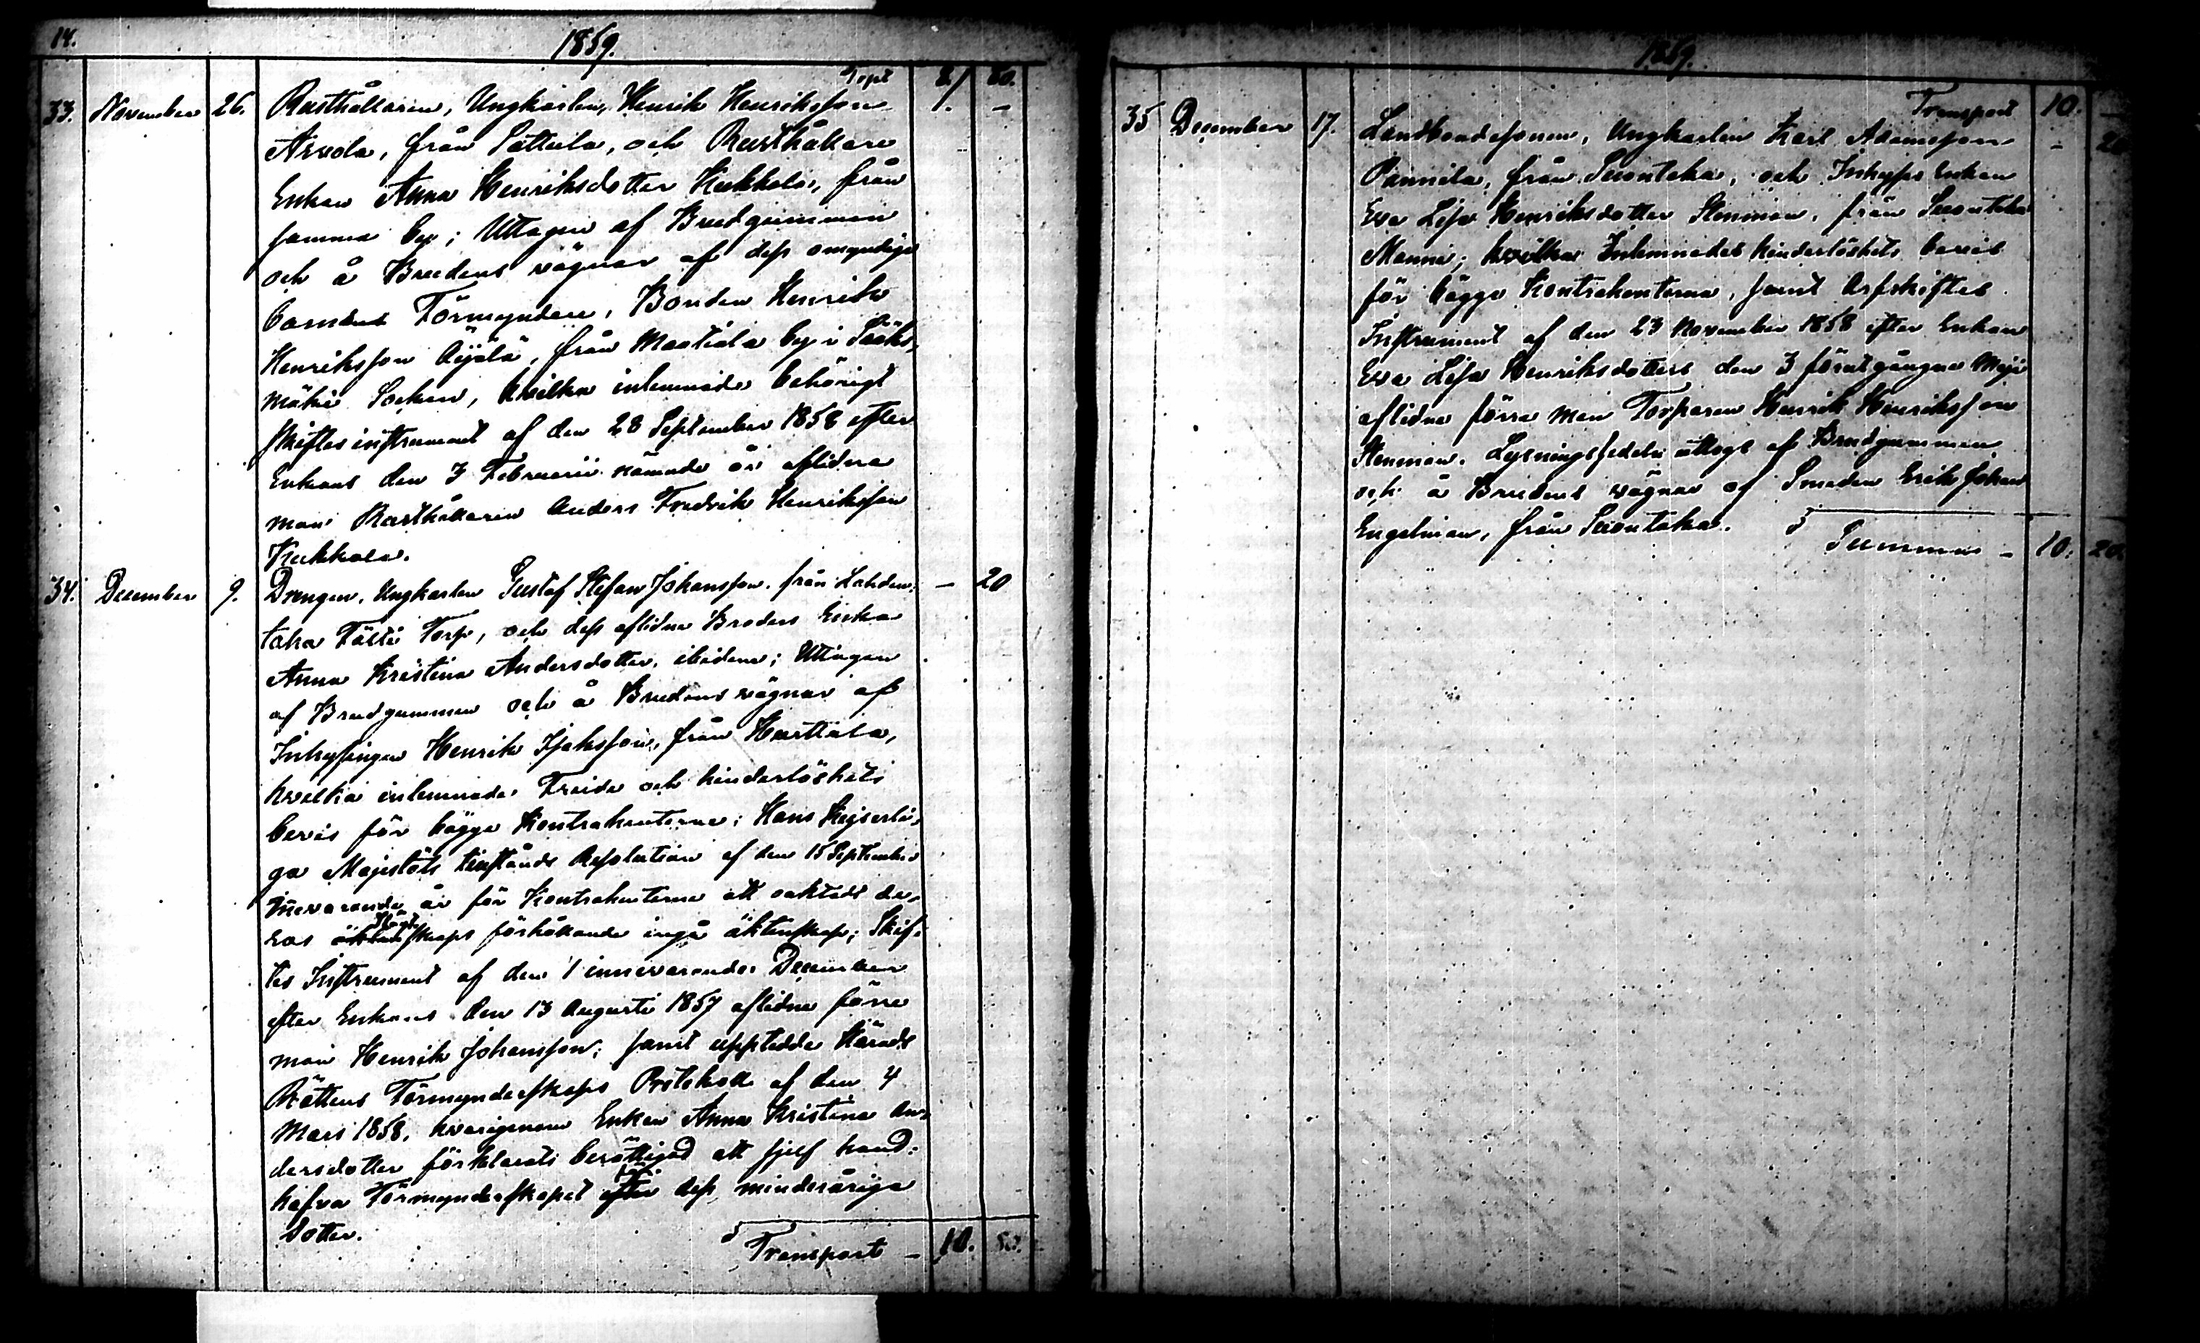 14.
1859.
Trpt 8/ 80.
33. November 26. Rusthållaren, Ungkarlen, Henrik Henriksson 1. –
Arvola, från Sattula, och Rusthållare
Enkan Anna Henriksdotter Kukkola, från
samma by; Uttagen af Brudgummen
och å Brudens vägnar af dess omyndiga
barns Förmyndare, Bonden Henrik
Henriksson Äijälä, från Maatiala by i Sääks-
mäki Socken, hvilka inlemnade behörigt
skiftesinstrument af den 28 September 1858 efter
Enkans den 3 Februarii nämnde år aflidna
man Rusthållaren Anders Fredrik Henriksson
Kukkola.
34. December 9. Drengen, Ungkarlen Gustaf Stefan Johansson, från Lahden- – 20
taka Fälti Torp, och dess aflidne Broders Enka
Anna Kristina Andersdotter, ibidem; Uttagen
af Brudgummen och å Brudens vägnar af
Inhysingen Henrik Isaksson, från Hurttala,
hvilka inlemnade Frejde och hinderlöshets
bevis för bägge Kontrahenterne; Hans Kejserli-
ga Majestäts tillstånds Resolution af den 15 September
innevarande år för Kontrahenterne att oaktadt de-
ras skyldskaps förhållande ingå äktenskap; Skif-
tes Instrument af den 1 innevarande December
efter Enkans den 13 Augusti 1857 aflidne förre
man Henrik Johansson; samt uppteddе Härads
Rättens Förmynderskaps Protokoll af den 4
Mars 1858, hvarigenom Enkan Anna Kristina An-
dersdotter förklarats berättigad att sjelf hand-
hafva Förmynderskapet för dess minderåriga
dotter.
Transport – 10.
1859.
Transport 10. –
35 December 17. Landbondesonen, Ungkarlen Karl Adamsson – 20
Pannila, från Suontaka, och Inhyses Enkan
Eva Lisa Henriksdotter Stenman, från Suontaka
Manni; hvilka Inlemnades hinderlöshets bevis
för bägge Kontrahenterne, samt Arfskiftes
Instrument af den 23 November 1858 efter Enkan
Eva Lisa Henriksdotters den 3 förutgångne Maji
aflidne förre man Torparen Henrik Henriksson
Stenman. Lysningssedeln uttogs af Brudgummen
och å Brudens vägnar af Smeden Erik Johan
Engelman, från Suontaka.
Summa – 10. 20.